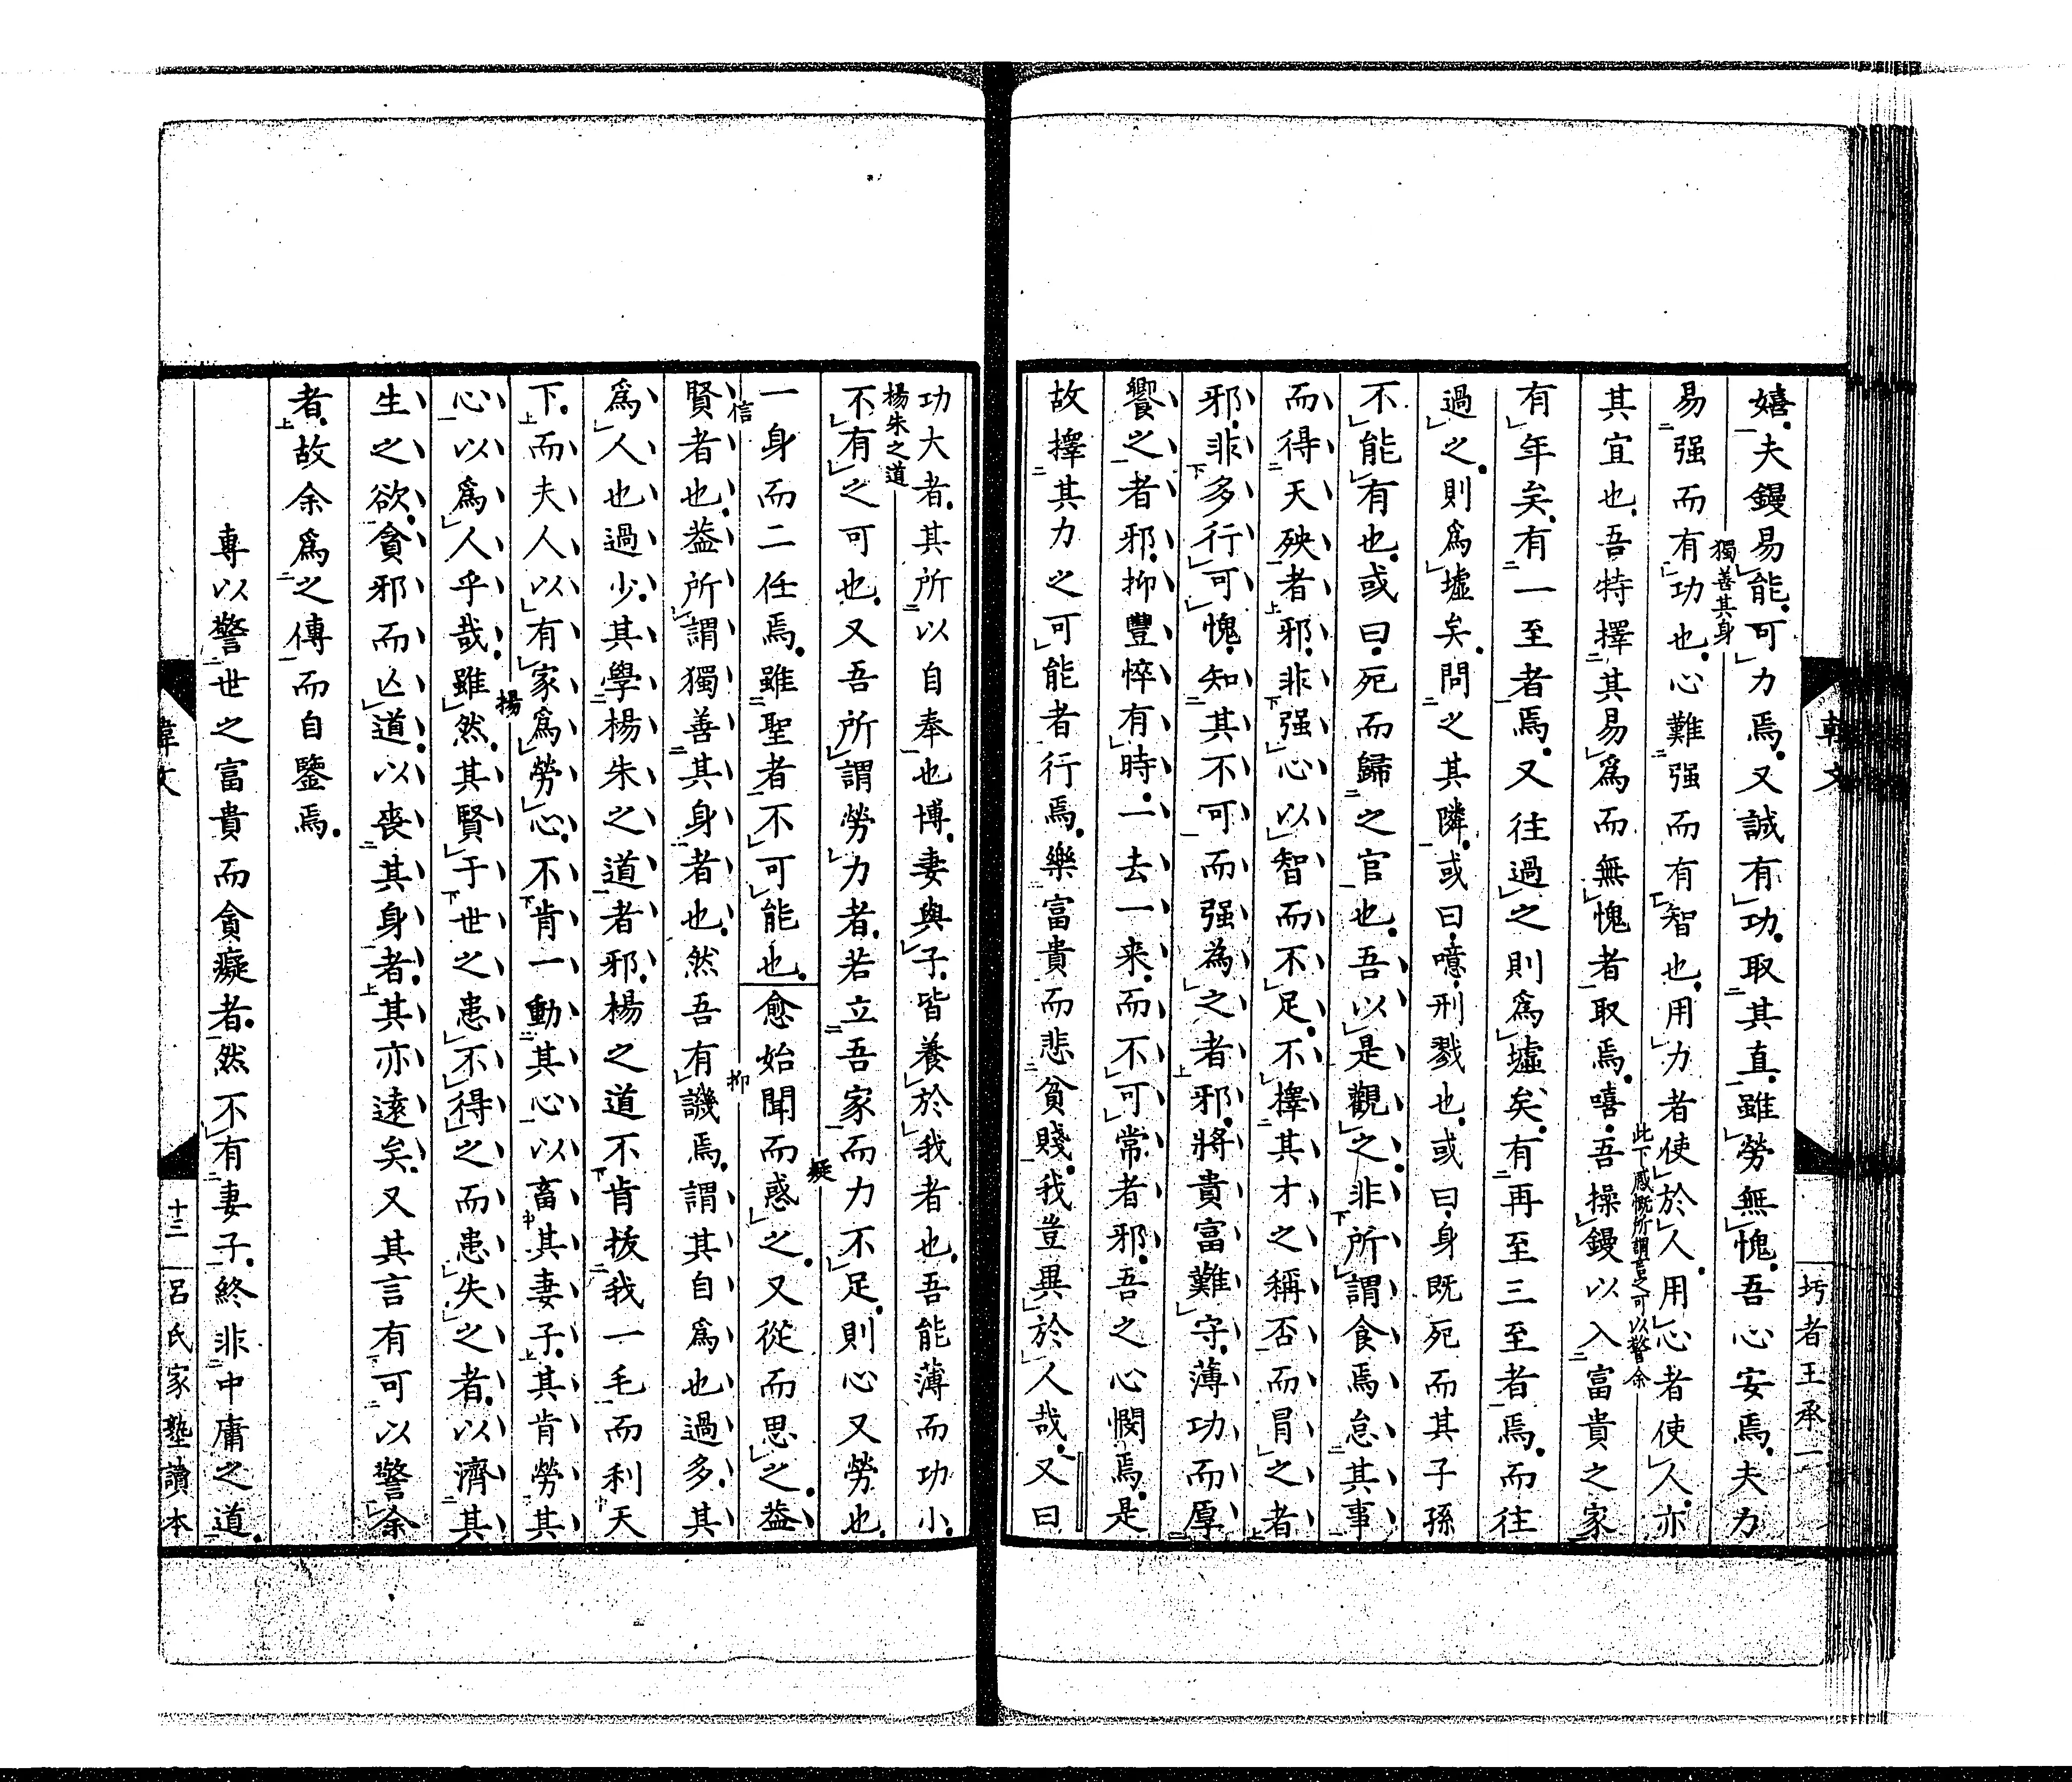 韓文
圬者王承一
嬉夫鏝易能可力焉又誠有功取其直雖勞無愧吾心安焉夫力
獨善其身
易强而有功也心難强而有智也用力者使於人用心者使人亦
此下感慨所謂言之可以警余
其宜也吾特擇其易爲而無愧者取焉嘻吾操鏝以入富貴之家
有年矣有一至者焉又往過之則爲墟矣有再至三至者焉而往
過之則爲墟矣問之其隣或曰噫刑戮也或曰身既死而其子孫
不能有也或曰死而歸之官也吾以是觀之非所謂食焉怠其事
而得天殃者邪非强心以智而不足不擇其才之稱否而冒之者
邪非多行可愧知其不可而强為之者邪將貴富難守薄功而厚
饗之者邪抑豐悴有時一去一来而不可常者邪吾之心憫焉是
故擇其力之可能者行焉樂富貴而悲貧賤我豈異於人哉又曰
功大者其所以自奉也博妻與子皆養於我者也吾能薄而功小
楊朱之道
不有之可也又吾所謂勞力者若立吾家而力不足則心又勞也
疑
一身而二任焉雖聖者不可能也愈始聞而惑之又從而思之葢
信
抑
賢者也葢所謂獨善其身者也然吾有譏焉謂其自爲也過多其
爲人也過少其學楊朱之道者邪楊之道不肯拔我一毛而利天
下而夫人以有家爲勞心不肯一動其心以畜其妻子其肯勞其
揚
心以爲人乎哉雖然其賢于世之患不得之而患失之者以濟其
生之欲貪邪而亾道以喪其身者其亦遠矣又其言有可以警余
者故余爲之傳而自鑒焉
專以警世之富貴而貪癡者然不有妻子終非中庸之道
韓文
十二
呂氏家塾讀本